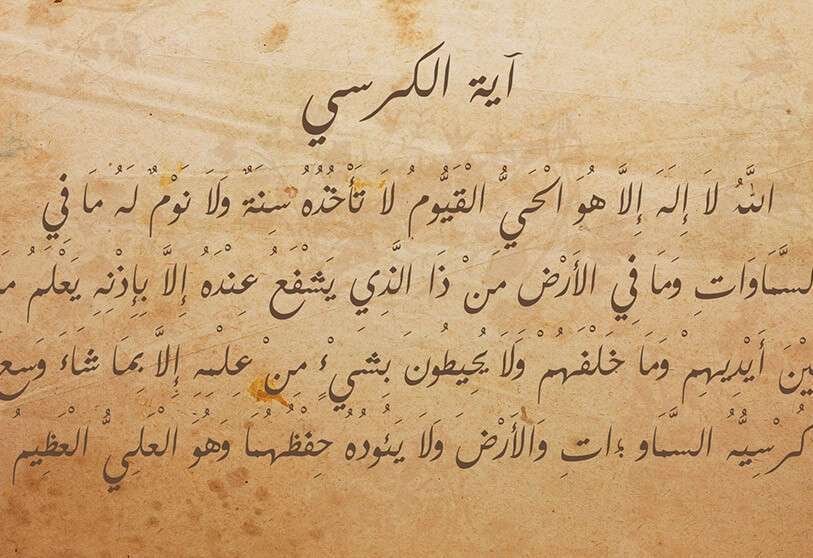 آية الكرسي
اللَّهُ لاَ إِلَهَ إِلاَّ هُوَ الْحَيُّ الْقَيُّومُ لاَ تَأْخُذُهُ سِنَةٌ وَلاَ نَوْمٌ لَهُ مَا فِي
السَّمَاوَاتِ وَمَا فِي الأَرْضِ مَنْ ذَا الَّذِي يَشْفَعُ عِنْدَهُ إِلاَّ بِإِذْنِهِ يَعْلَمُ مَ
يْنَ أَيْدِيهِمْ وَمَا خَلْفَهُمْ وَلاَ يُحِيطُونَ بِشَيْءٍ مِنْ عِلْمِهِ إِلاَّ بِمَا شَاءَ وَسِعَ
كُرْسِيُّهُ السَّمَاو ؛اتِ وَالأَرْضَ وَلاَ يَئُودُهُ حِفْظُهُمَا وَهُوَ الْعَلِيُّ الْعَظِيمُ